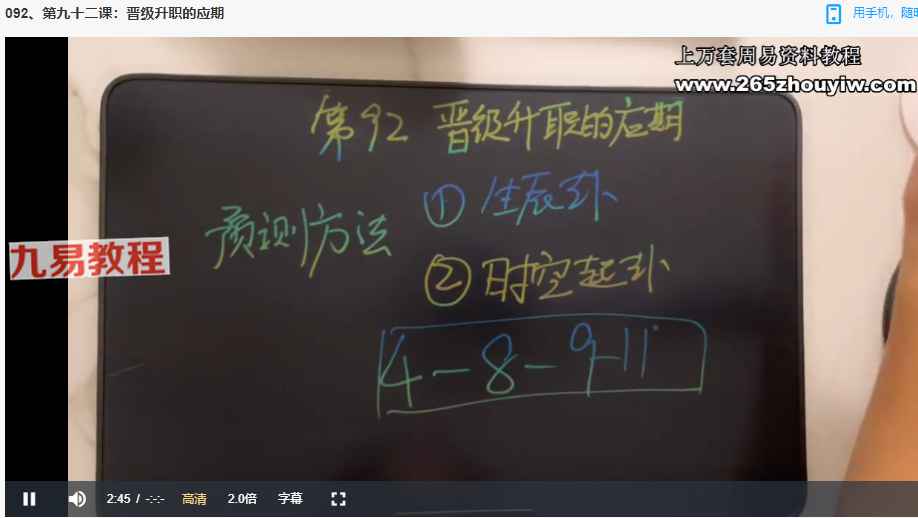 092、第九十二课：晋级升职的应期
用手机，随时
上万套周易资料教程
www.265zhouyiw.com
第92 晋级升职的应期
预测方法 ①生辰卦
②时空起卦
4-8-9-11
九易教程
2:45 / -:-:- 高清 2.0倍 字幕